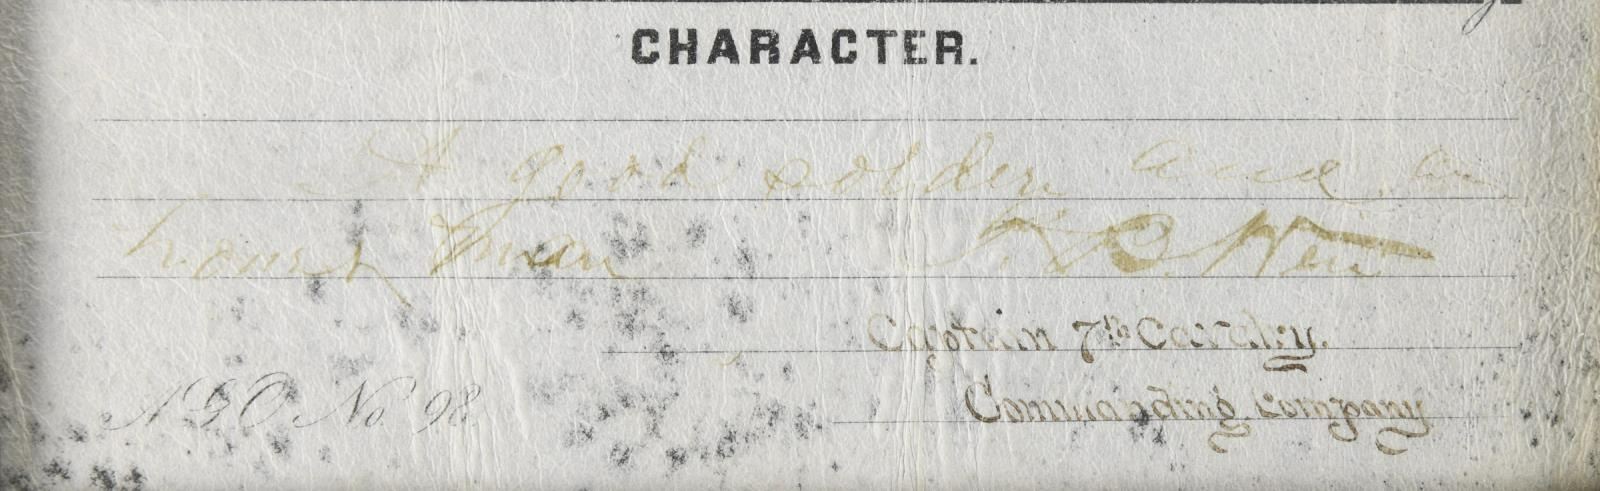 CHARACTER.
A good soldier and an
honest man T. B. Weir
Captain 7th Cavalry.
Commanding Company
A G O No. 98.